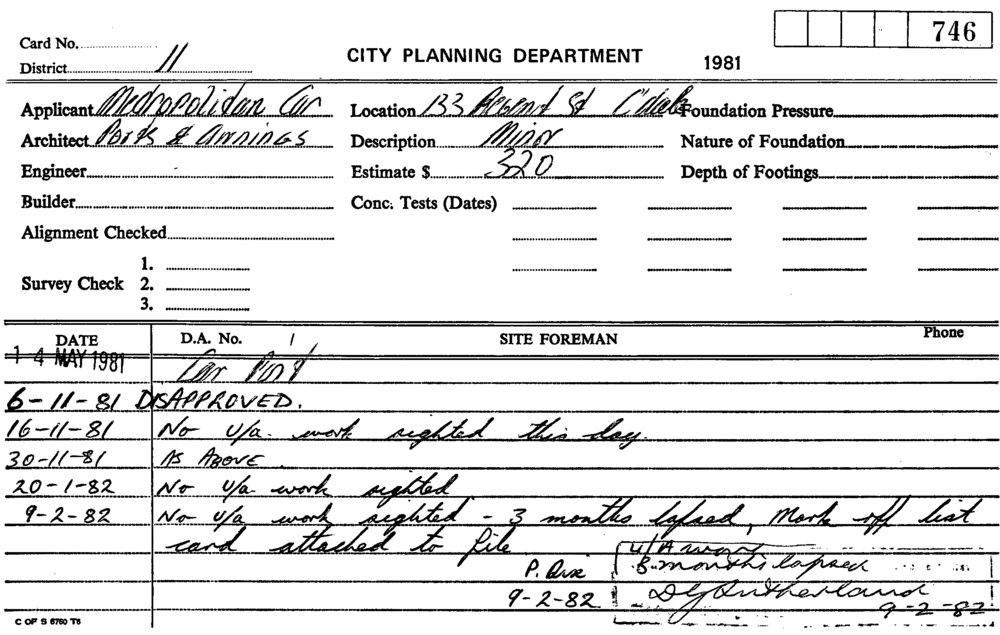 746
Card No.
District 11
CITY PLANNING DEPARTMENT 1981
Applicant Metropolitan Car Location 133 Regent St C'dale Foundation Pressure
Architect Ports & Awnings Description Minor Nature of Foundation
Engineer Estimate $ 320 Depth of Footings
Builder Conc. Tests (Dates)
Alignment Checked
1.
Survey Check 2.
3.
DATE D.A. No. / SITE FOREMAN Phone
14 MAY 1981 Car Port
6-11-81 DISAPPROVED.
16-11-81 No U/a. work sighted this day.
30-11-81 AS ABOVE.
20-1-82 No U/a work sighted
9-2-82 No U/a work sighted - 3 months lapsed, Mark off list
card attached to file
U/A work
P. 3 months lapsed
9-2-82 Sutherland
9-2-82
C OF S 6760 T6